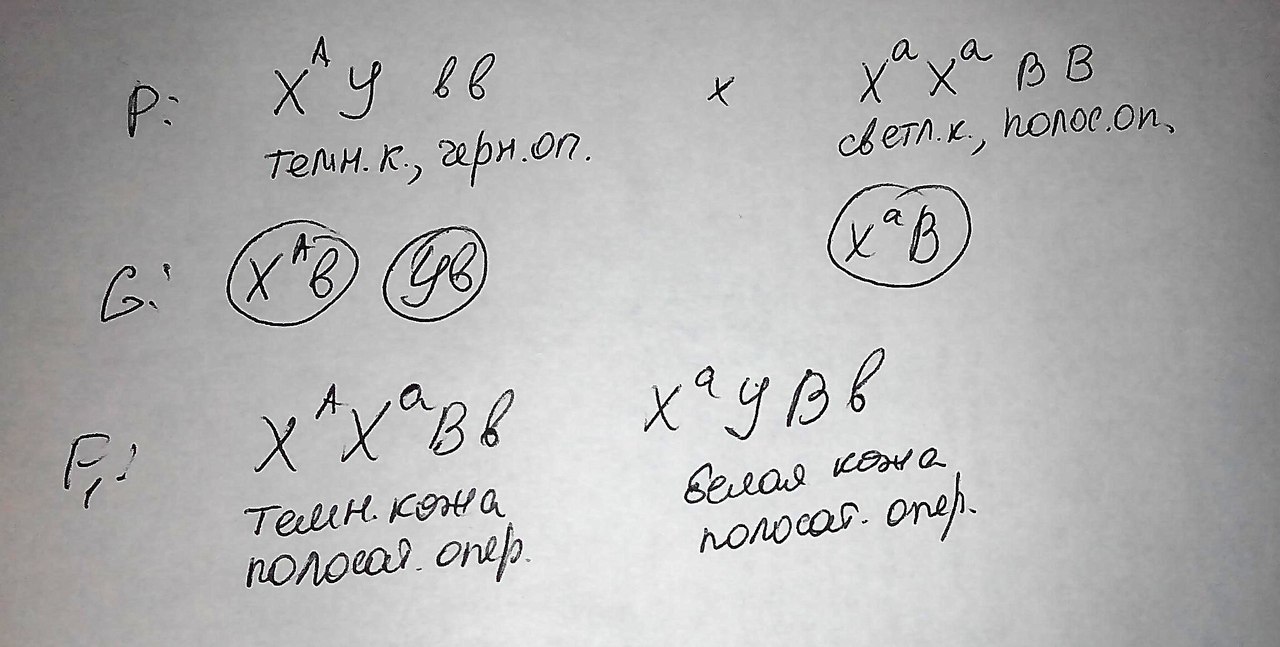 P: X^A У в в x X^a X^a В В
темн. к., черн. оп. светл. к., полос. оп.
G: X^A в Ув X^a В
F₁: X^A X^a В в X^a У В в
темн. кожа белая кожа
полосат. опер. полосат. опер.